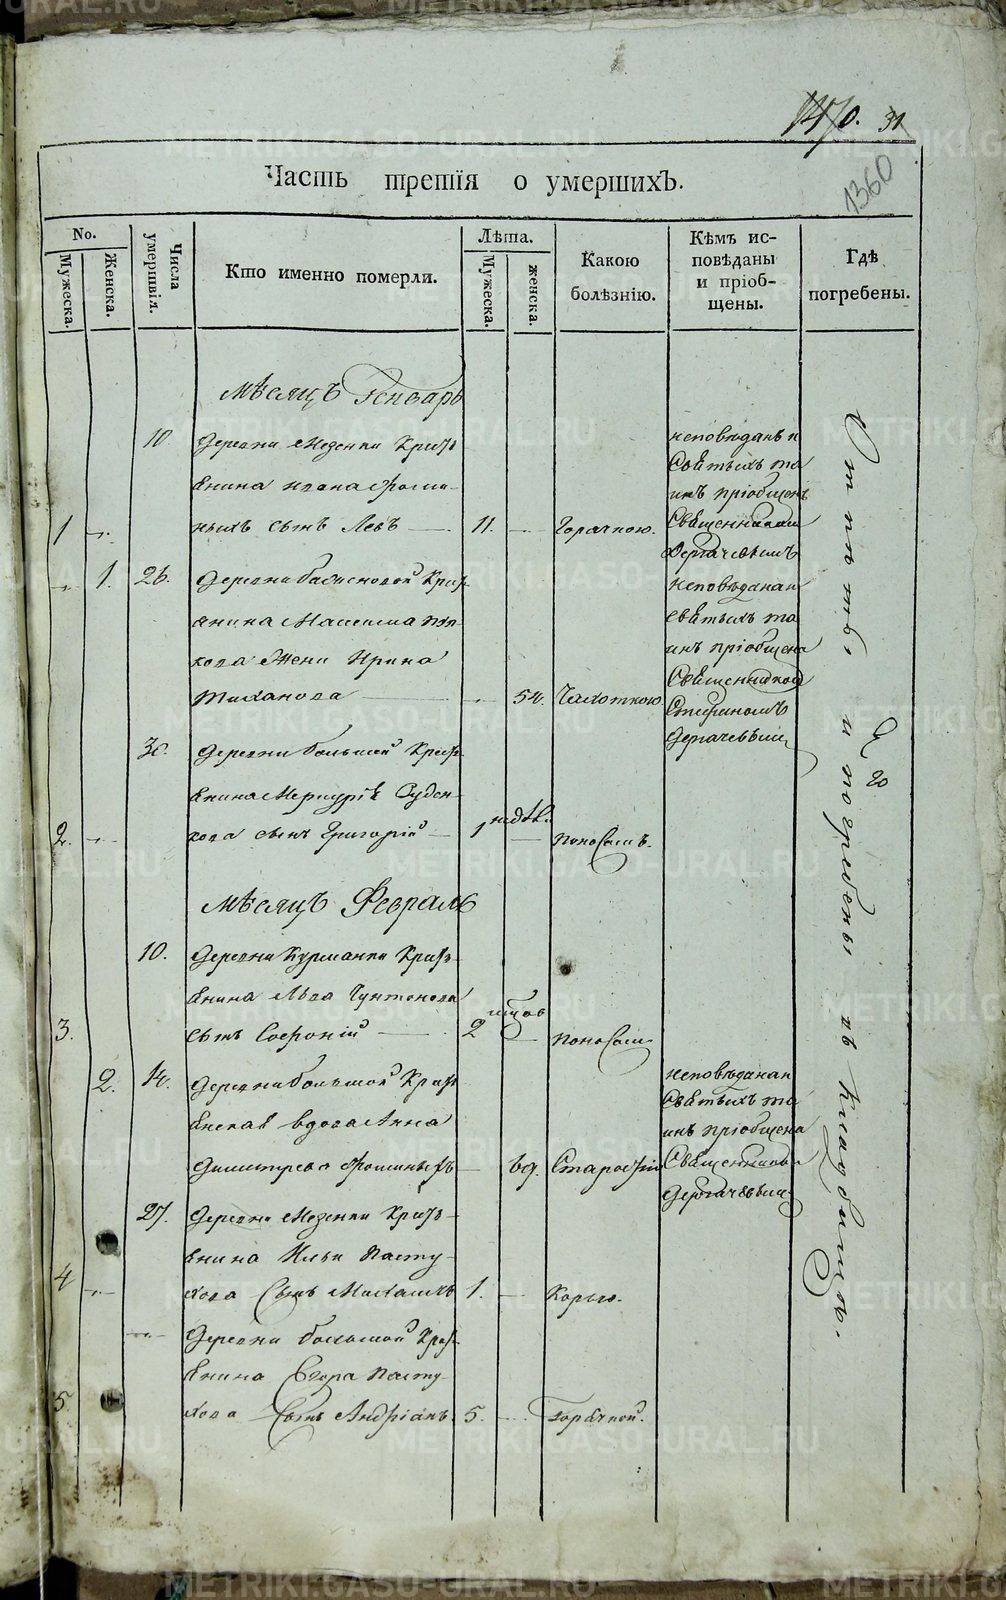 1470. 31
1360
Часть третія о умершихъ.
No.
Мужеска.
Женска.
Числа умершія.
Кто именно померли.
Лѣта.
Мужеска.
женска.
Какою болѣзнію.
Кѣмъ исповѣданы и пріобщены.
Гдѣ погребены.
Мѣсяцъ Генварь
10. Деревни Мезенки Кресть
янина Ивана Фоми
1 ныхъ сынъ Левъ 11 Горячкою.
исповѣданъ и
Святыхъ та
инъ пріобщенъ
Священникомъ
Дергачевымъ
1. 26. Деревни Кресть
янина Максима
кова Жена Ирина
54. Чахоткою
исповѣдана и
святыхъ та
инъ пріобщена
Священникомъ
Стефаномъ
Дергачевымъ
30. Деревни большой Кресть
янина Меркурія Руден
2. кова сынъ Григорій 1 недѣл. поносомъ.
Мѣсяцъ Февраль
10. Деревни Курманки Кресть
янина Льва
3. сынъ Софроній 2 поносом
2. 14. Деревни большой Кресть
янская вдова Анна
Димитрева Фоминыхъ 69. Старостію
исповѣдана и
Святыхъ та
инъ пріобщена
Священником
Дергачевым
27. Деревни Мезенки Кресть
янина Ильи Пасту
4 хова Сынъ Михаилъ 1. Корью.
Деревни большой Крест
янина Егора Пасту
5 хова Сынъ Андріанъ. 5. Горячкой.
Отпѣты и погребены на Кладбищѣ.